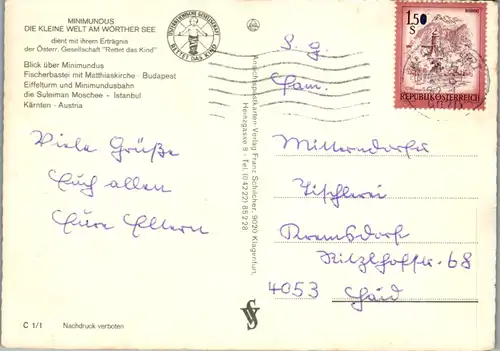 MINIMUNDUS
DIE KLEINE WELT AM WÖRTHER SEE
dient mit ihrem Erträgnis
der Österr. Gesellschaft "Rettet das Kind"
Blick über Minimundus
Fischerbastei mit Matthiaskirche - Budapest
Eiffelturm und Minimundusbahn
die Suleiman Moschee - Istanbul
Kärnten - Austria
ÖSTERREICHISCHE GESELLSCHAFT
RETTET DAS KIND
1.50
S
REPUBLIK ÖSTERREICH
Viele Grüße
Euch allen
Eure Eltern
Ansichtspostkarten-Verlag Franz Schilcher, 9020 Klagenfurt,
Heinzgasse 8 - Tel. (04222) 85228
S. g.
Fam.
Mitterndorfer
Tischlerei
Kitzlhofstr. 68
4053 Haid
C 1/1 Nachdruck verboten